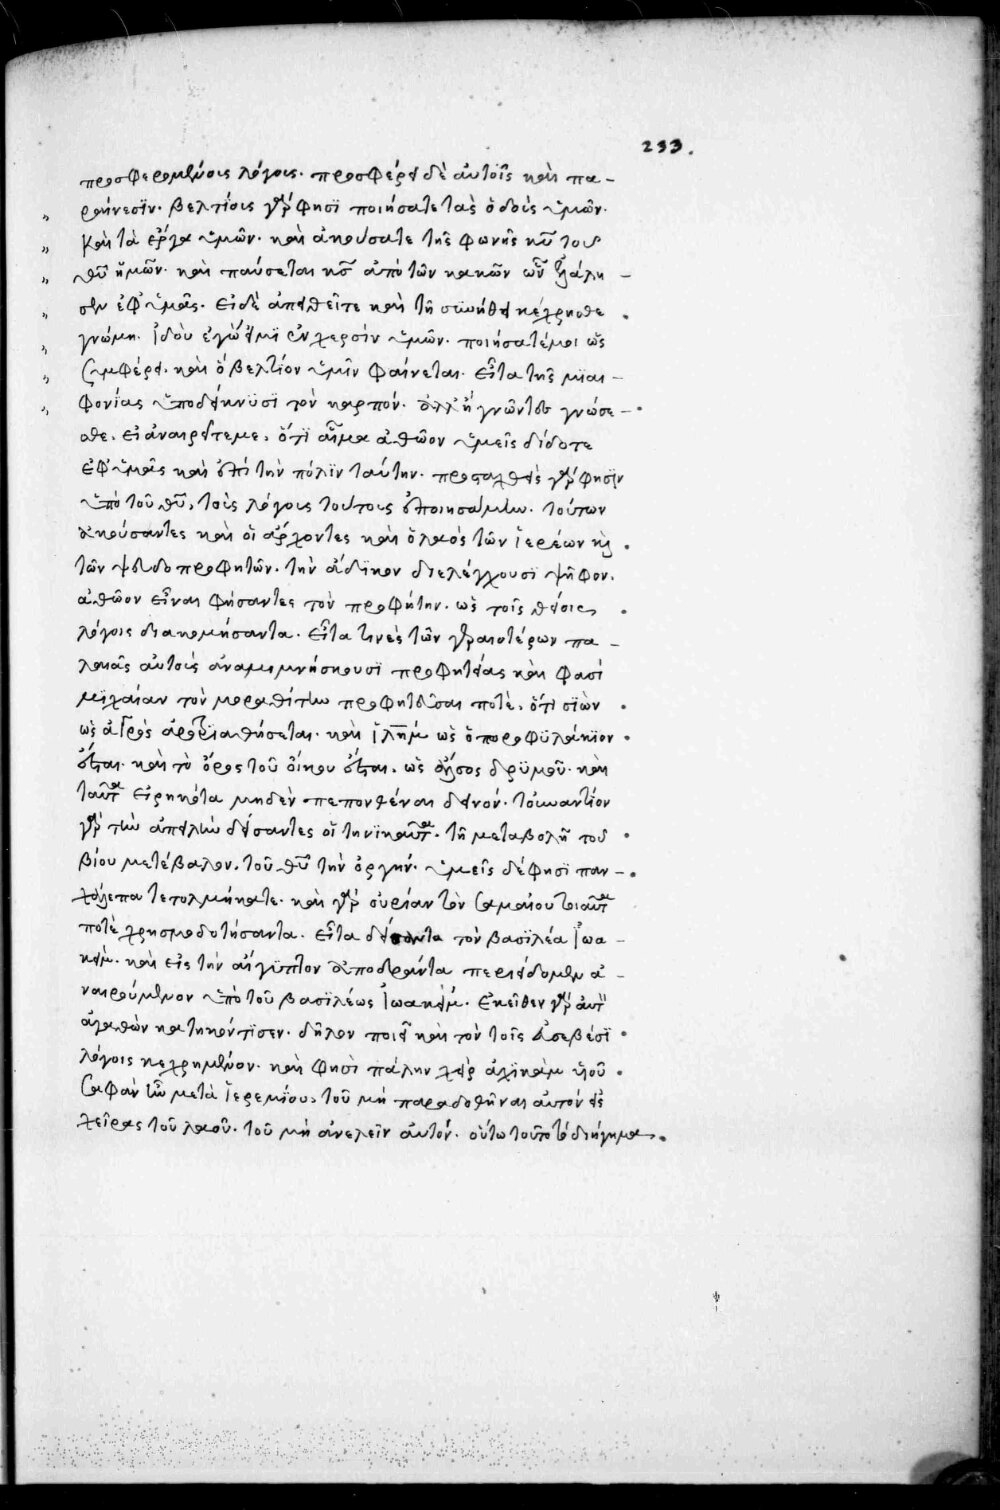 233.
προσφερομένοις λόγοις· προσφέρει δὲ αὐτοῖς καὶ πα–
ραίνεσϊν· βελτίους γάρ φησϊ ποιήσατε τὰς ὁδοὺς ὑμῶν·
καὶ τὰ ἔργα ὑμῶν· καὶ ἀκούσατε τῆς φωνῆς κυ τοῦ
θυ ἡμῶν· καὶ παύσεται κς ἀπὸ τῶν κακῶν ὧν ἐλάλη –
σεν ἐφ' ὑμᾶς· εἰ δὲ ἀπειθεῖτε καὶ τῇ συνήθει κέχρησθε
γνώμῃ· ἰδοὺ ἐγὼ εἰμϊ ἐν χερσὶν ὑμῶν· ποιήσατέ μοι ὡς
συμφέρει· καὶ ὃ βέλτιον ὑμῖν φαίνεται· εἶτα τῆς μϊαι –
φονίας ὑποδείκνυσϊ τὸν καρπόν· ἀλλ' ἢ γνῶντες γνώσε –
σθε, εἰ ἀναιρεῖτέ με, ὅτϊ αἷμα ἀθῶον ὑμεῖς δίδοτε
ἐφ' ὑμᾶς καὶ ἐπὶ τὴν πόλϊν ταύτην· προσταχθεὶς γάρ φησϊν
ὑπὸ τοῦ θυ, τοὺς λόγους τούτους ἐποιησάμην· τούτων
ἀκούσαντες καὶ οἱ ἄρχοντες καὶ ὁ λαὸς τῶν ἱερέων κὶ
τῶν ψευδοπροφητῶν· τὴν ἄδικον διελέγχουσϊ ψῆφον·
ἀθῶον εἶναι φήσαντες τὸν προφήτην· ὡς τοῖς θείοις
λόγοις διακομήσαντα· εἶτα τινὲς τῶν γεραιοτέρων πα –
λαιᾶς αὐτοὺς ἀναμιμνήσκουσϊ προφητείας καὶ φασί
μϊχαίαν τὸν μοραθίτην προφητεῦσαι ποτὲ, ὅτι σϊὼν
ὡς ἀγρὸς ἀροτριαθήσεται· καὶ ἱλημ ὡς ὀποροφϋλάκιον
ἔσται· καὶ τὸ ὄρος τοῦ οἴκου ἔσται, ὡς ἄλσος δρϋμοῦ· καὶ
ταῦτα εἰρηκότα μηδὲν πεπονθέναι δεινόν· τοὐναντίον
γὰρ τὴν ἀπειλὴν δείσαντες οἱ τηνϊκαῦτα· τῇ μεταβολῇ τοῦ
βίου μετέβαλον, τοῦ θυ τὴν ὀργήν· ὑμεῖς δέ φησι παγ –
χάλεπα τετολμήκατε· καὶ γὰρ οὐρίαν τὸν σαμαίου τοιαῦτα
ποτὲ χρησμοδοτήσαντα· εἶτα δείσαντα τὸν βασϊλέα ἰωα –
κεὶμ· καὶ εἰς τὴν αἴγϋπτον ἀποδράντα περιείδομεν ἀ –
ναιρούμενον ὑπὸ τοῦ βασϊλέως ἰωακείμ· ἐκεῖθεν γὰρ αὐτὸν
ἀγαθὼν κατηκόντϊσεν· δῆλον ποιεῖ καὶ τὸν τοῖς ἀσεβέσϊ
λόγοις κεχρημένον· καὶ φησὶ πάλην χεὶρ ἀχϊκὰμ υἱοῦ
σαφὰν ἦν μετὰ ἱερεμίου, τοῦ μὴ παραδοθῆναι αὐτὸν εἰς
χεῖρας τοῦ λαοῦ· τοῦ μὴ ἀνελεῖν αὐτόν· οὕτω τοῦτο τὸ διήγημα